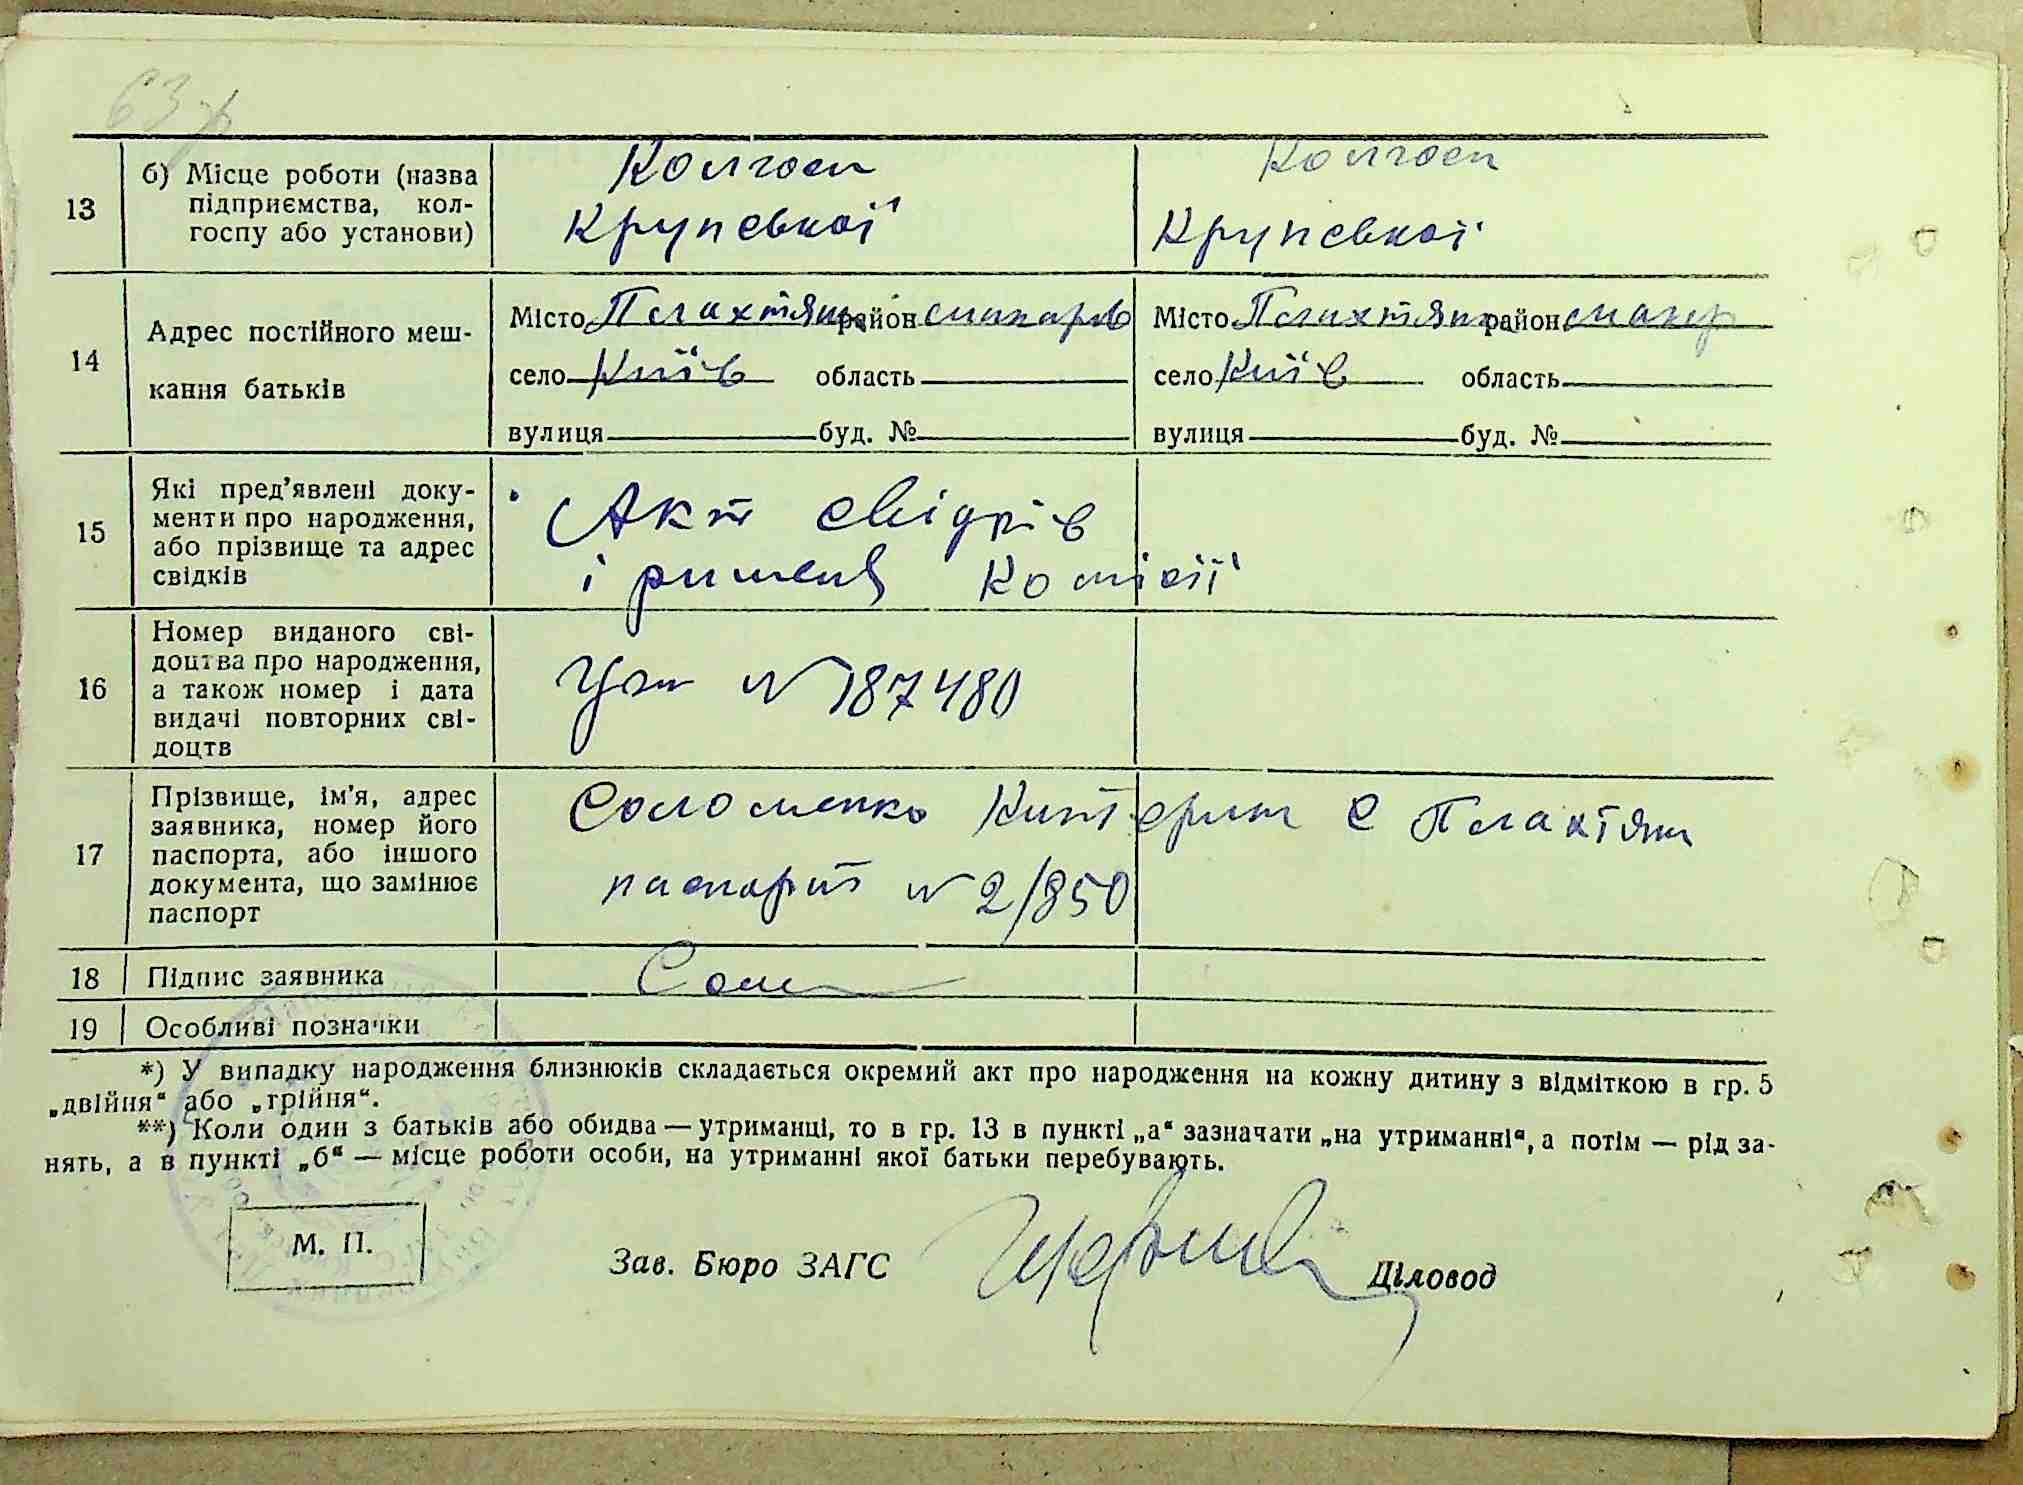 63
13 б) Місце роботи (назва підприємства, кол-
госпу або установи)
Колгосп
Крупської
Колгосп
Крупської
14 Адрес постійного меш-
кання батьків
Місто Плахтянка район Макарів
село Київ область
вулиця буд. №
Місто Плахтянка район Макар
село Київ область
вулиця буд. №
15 Які пред'явлені доку-
менти про народження,
або прізвище та адрес
свідків
Акт свідків
і рішення Комісії
16 Номер виданого сві-
доцтва про народження,
а також номер і дата
видачі повторних сві-
доцтв
N 187480
17 Прізвище, ім'я, адрес
заявника, номер його
паспорта, або іншого
документа, що замінює
паспорт
Соломенко Катерина с Плахтянка
паспорт N 2/850
18 Підпис заявника
19 Особливі позначки
*) У випадку народження близнюків складається окремий акт про народження на кожну дитину з відміткою в гр. 5
„двійня“ або „трійня“.
**) Коли один з батьків або обидва — утриманці, то в гр. 13 в пункті „а“ зазначати „на утриманні“, а потім — рід за-
нять, а в пункті „б“ — місце роботи особи, на утриманні якої батьки перебувають.
М. П.
Зав. Бюро ЗАГС
Діловод